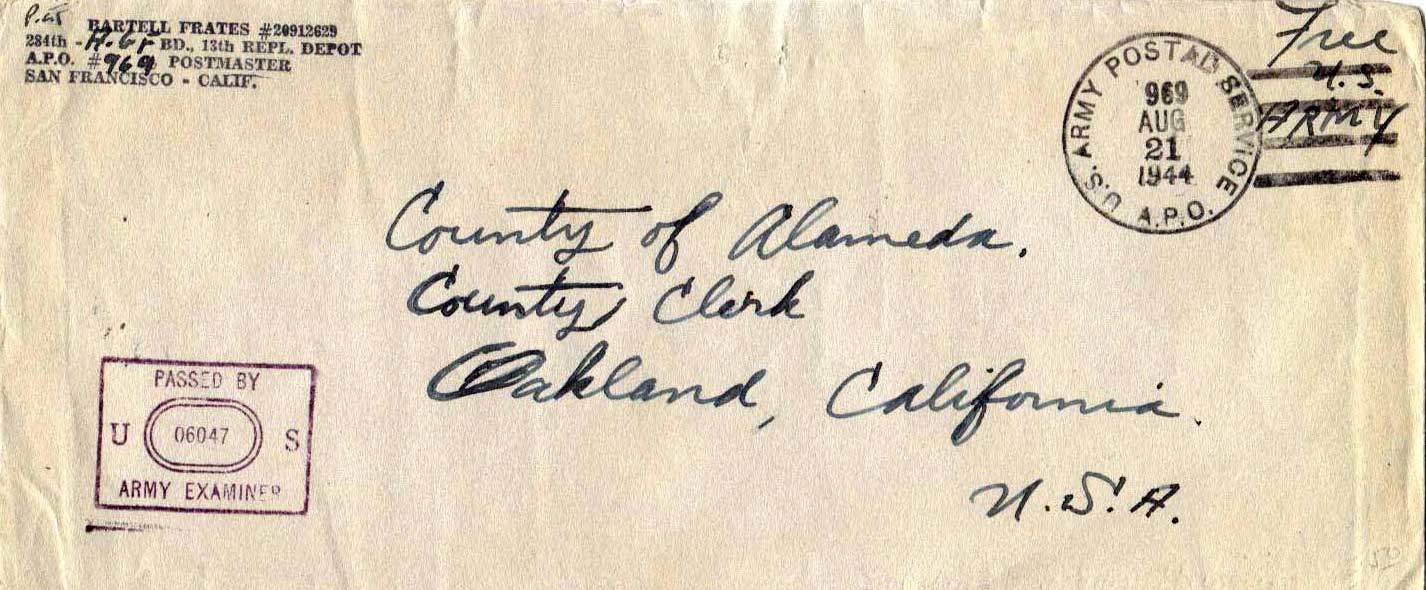 BARTELL FRATES #20912629
284th - BD., 13th REPL. DEPOT
A.P.O. #969 POSTMASTER
SAN FRANCISCO - CALIF.
U.S. ARMY POSTAL SERVICE
969
AUG
21
1944
A.P.O.
Free
U.S.
ARMY
County of Alameda.
County Clerk
Oakland, California.
U.S.A.
PASSED BY
U 06047 S
ARMY EXAMINER